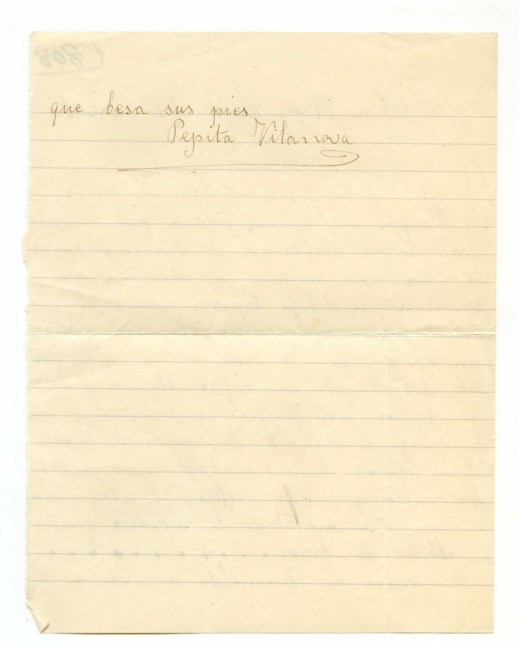 que besa sus pies
Pepita Vilanova